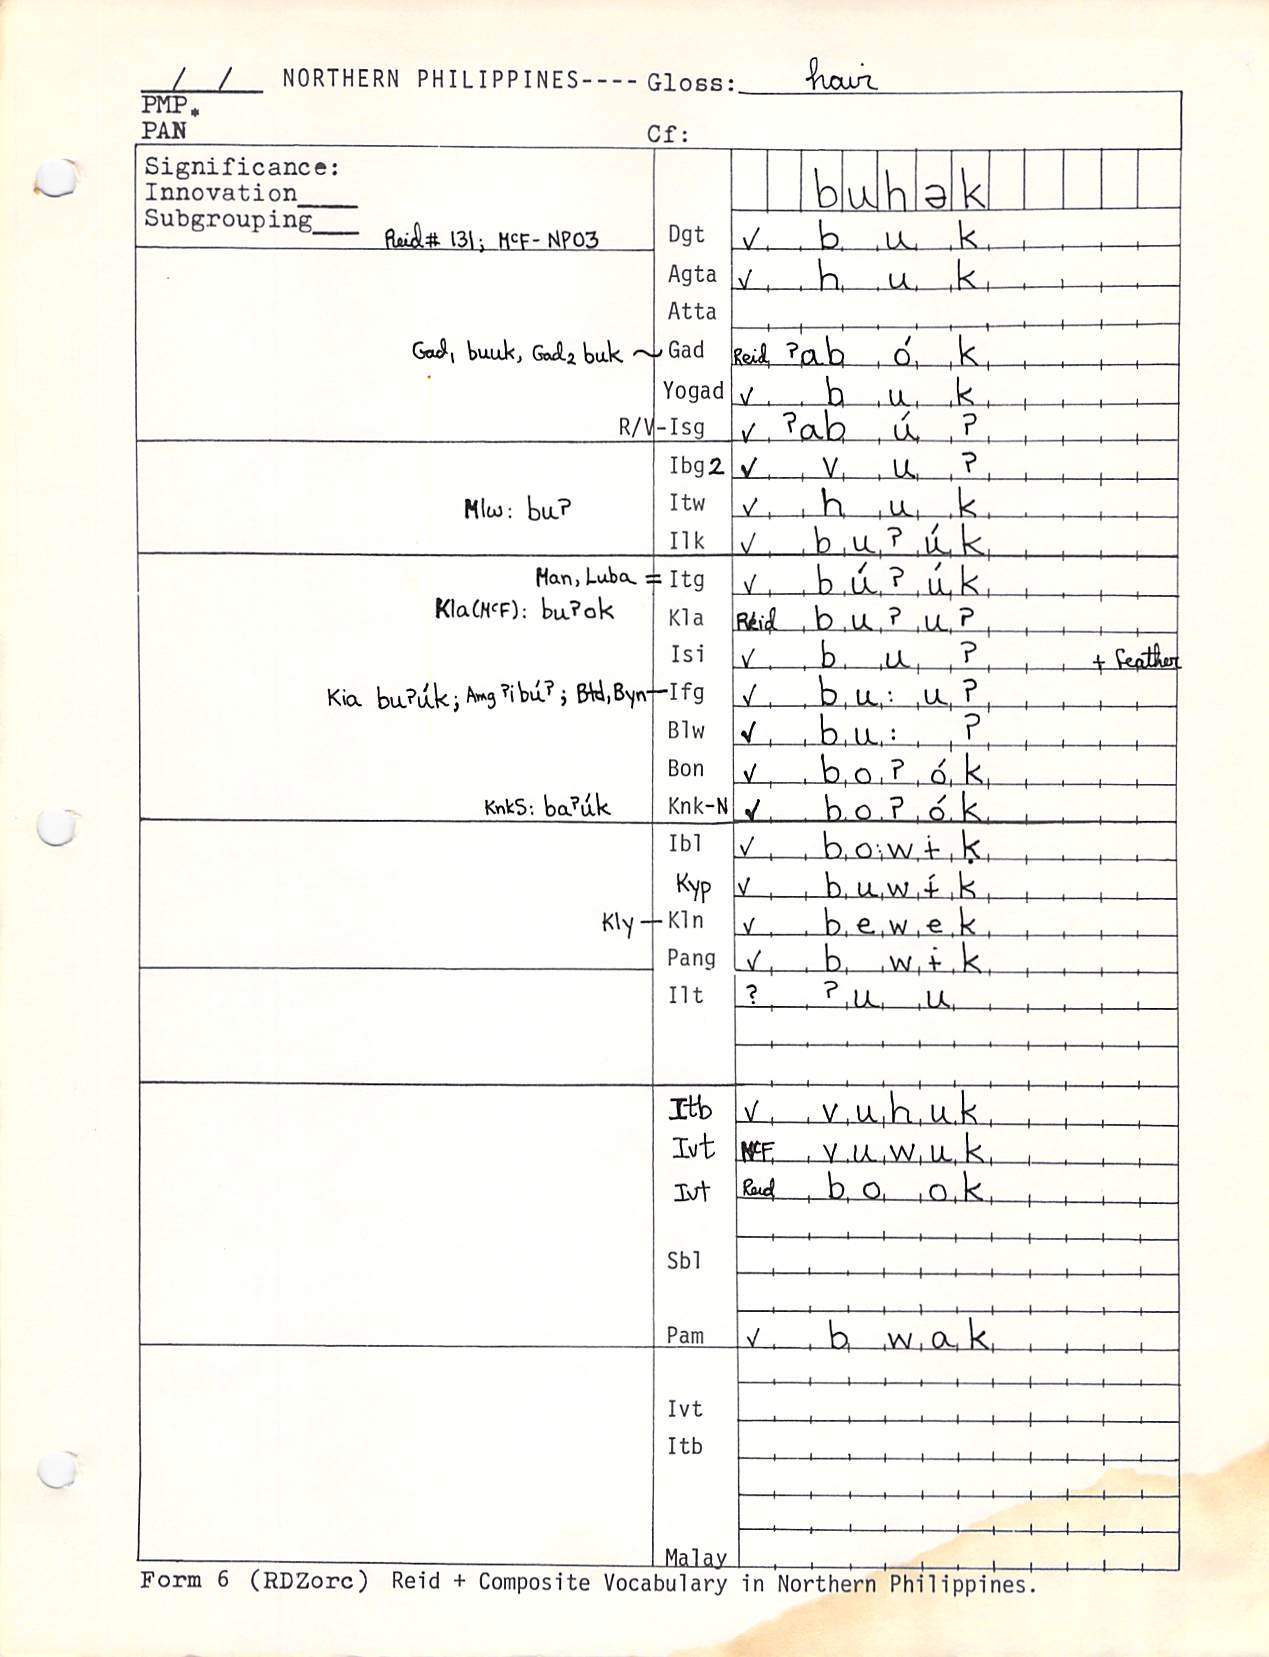 / / NORTHERN PHILIPPINES---- Gloss: hair
PMP*
PAN Cf:
Significance:
Innovation____
Subgrouping___
b u h ə k
Reid# 131; McF- NP03
Dgt ✓ b u k
Agta ✓ h u k
Atta
Gad₁ buuk, Gad₂ buk ~ Gad Reid ʔab ó k
Yogad ✓ b u k
R/V-Isg ✓ ʔab ú ʔ
Ibg2 ✓ v u ʔ
Mlw: buʔ Itw ✓ h u k
Ilk ✓ b u ʔ ú k
Man, Luba = Itg ✓ b ú ʔ ú k
Kla(McF): buʔok Kla Reid b u ʔ u ʔ
Isi ✓ b u ʔ + feather
Kia buʔúk; Amg ʔibúʔ; Btd, Byn—Ifg ✓ b u : u ʔ
Blw ✓ b u : ʔ
Bon ✓ b o ʔ ó k
KnkS: baʔúk Knk-N ✓ b o ʔ ó k
Ibl ✓ b o : w ɨ ḳ
Kyp ✓ b u w ɨ́ k
Kly — Kln ✓ b e w e k
Pang ✓ b w ɨ k
Ilt ? ʔ u u
Itb ✓ v u h u k
Ivt McF v u w u k
Ivt Reid b o o k
Sbl
Pam ✓ b w a k
Ivt
Itb
Malay
Form 6 (RDZorc) Reid + Composite Vocabulary in Northern Philippines.